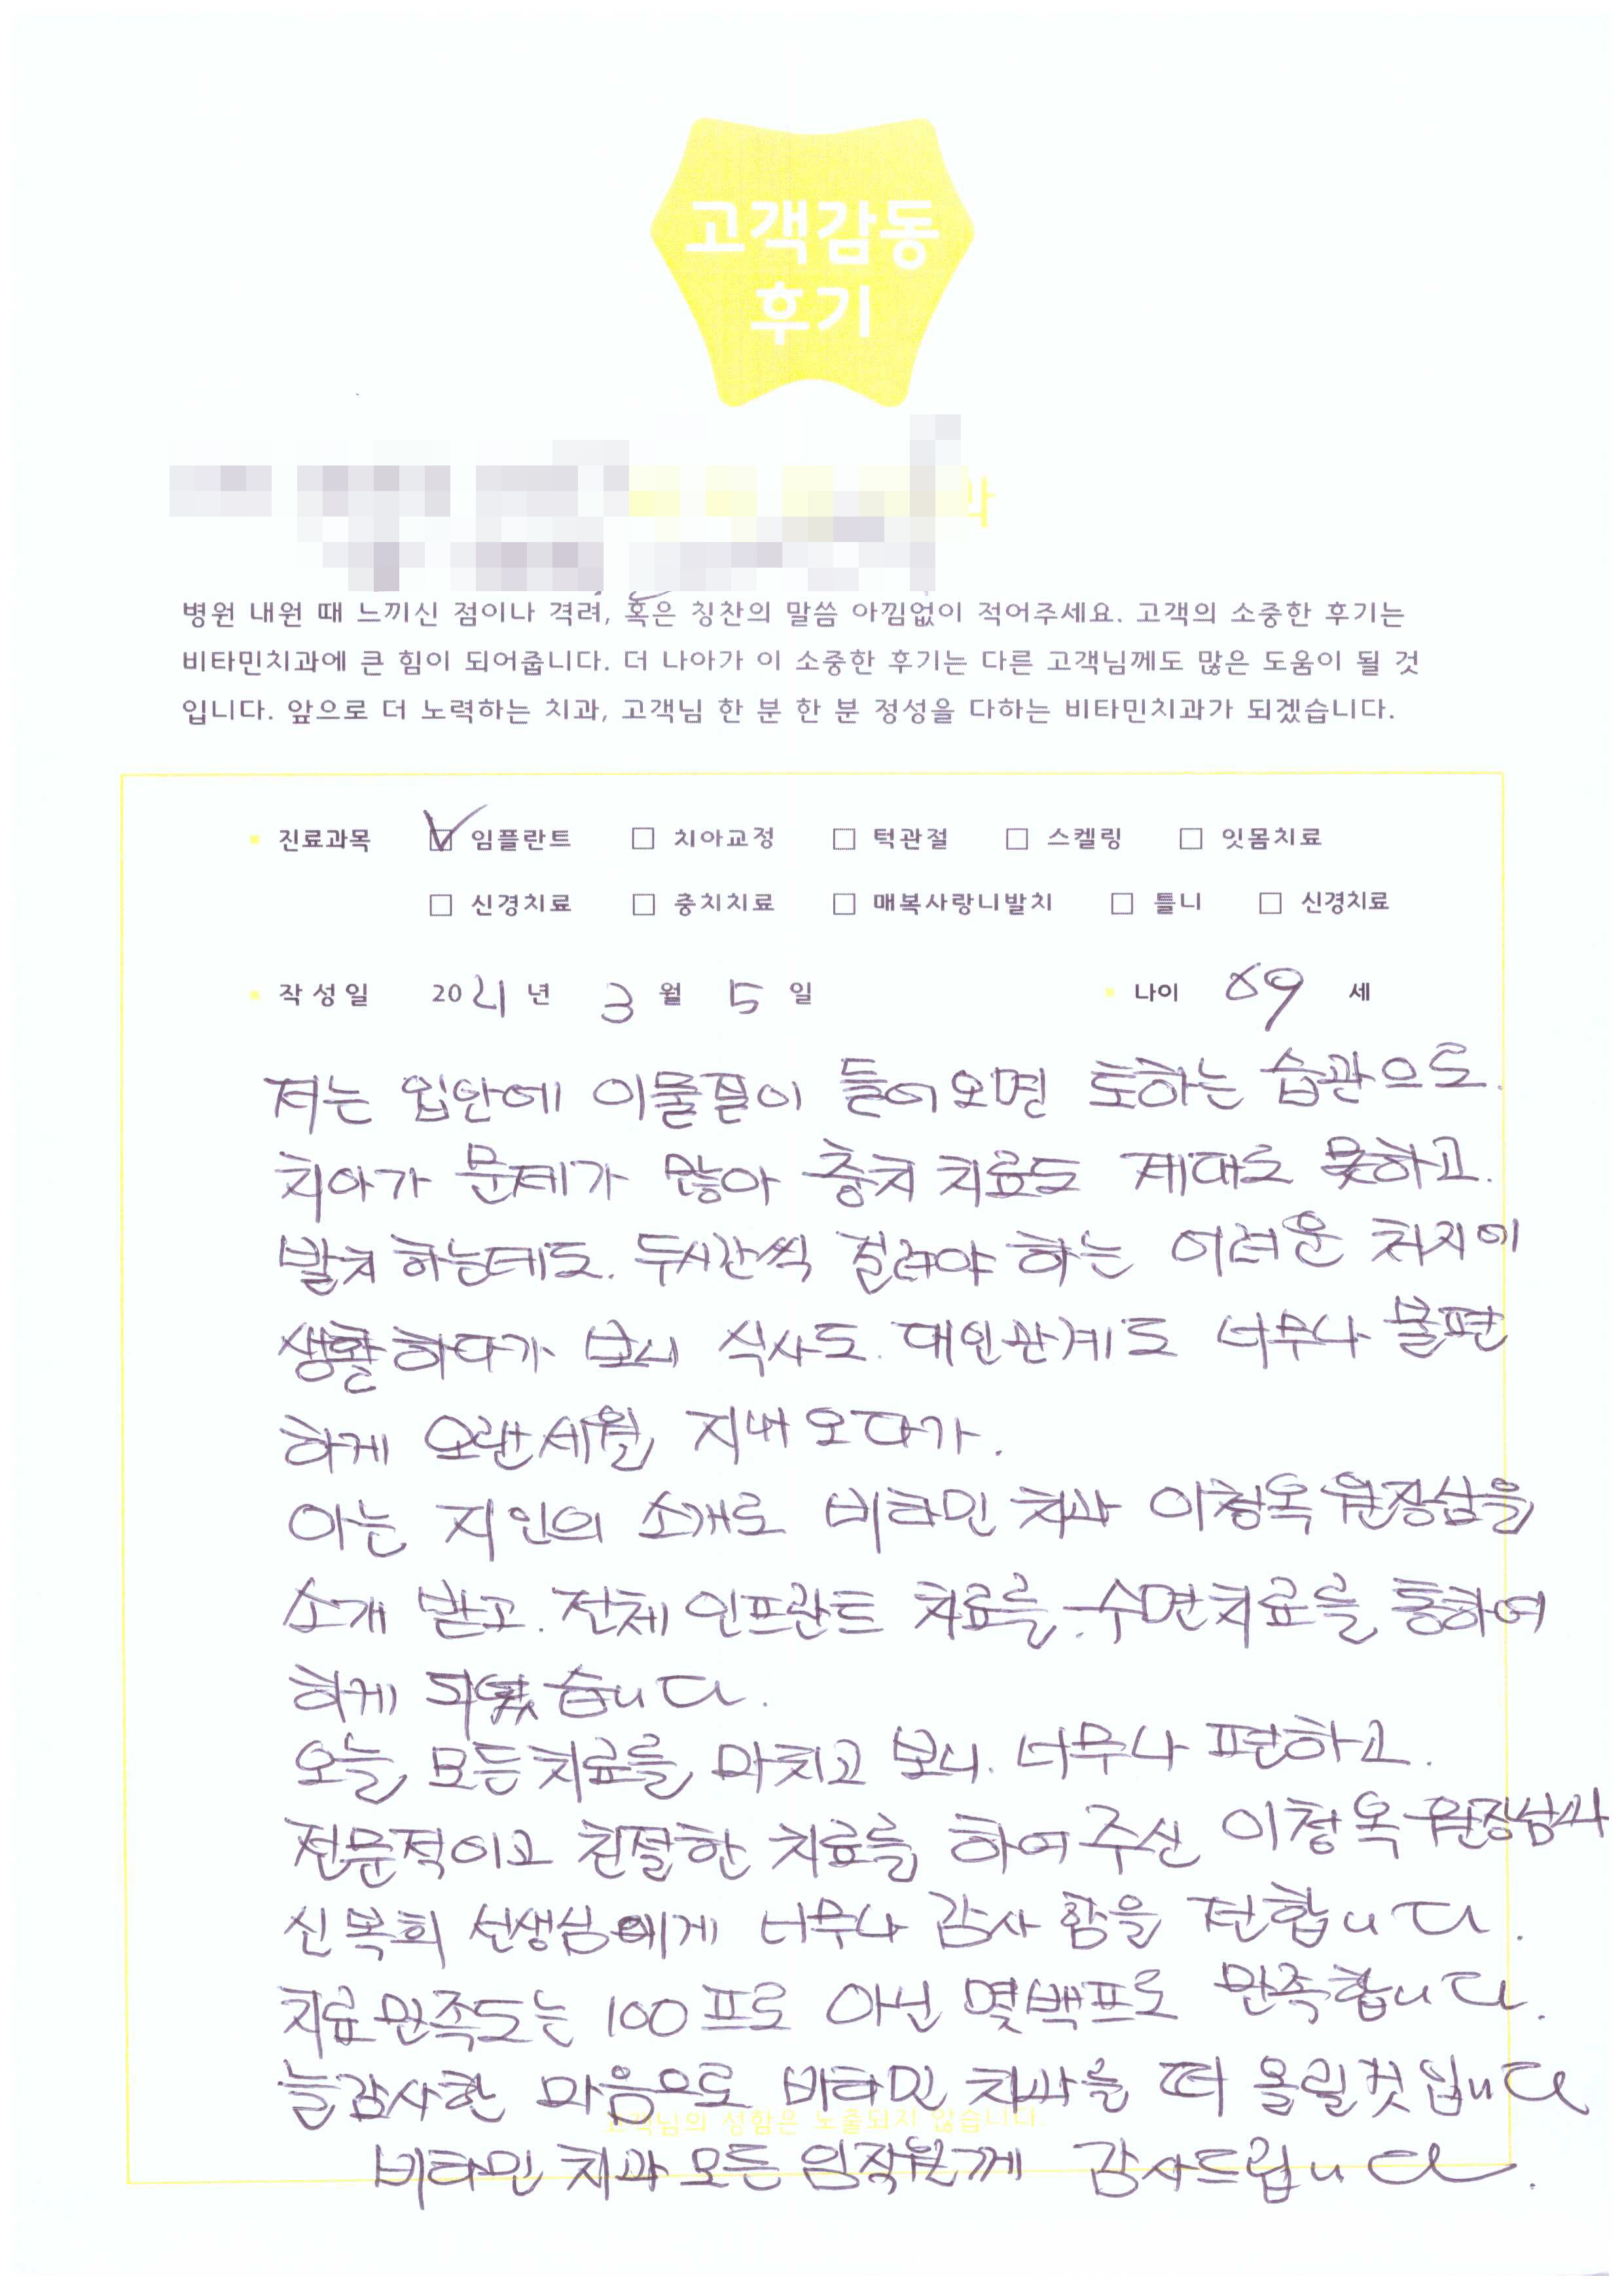 고객감동
후기
과
병원 내원 때 느끼신 점이나 격려, 혹은 칭찬의 말씀 아낌없이 적어주세요. 고객의 소중한 후기는
비타민치과에 큰 힘이 되어줍니다. 더 나아가 이 소중한 후기는 다른 고객님께도 많은 도움이 될 것
입니다. 앞으로 더 노력하는 치과, 고객님 한 분 한 분 정성을 다하는 비타민치과가 되겠습니다.
진료과목 ☑ 임플란트 □ 치아교정 □ 턱관절 □ 스켈링 □ 잇몸치료
□ 신경치료 □ 충치치료 □ 매복사랑니발치 □ 틀니 □ 신경치료
작성일 2021년 3월 5일 나이 69 세
저는 입안에 이물질이 들어오면 토하는 습관으로.
치아가 문제가 많아 충치 치료도 제대로 못하고.
발치 하는데도. 두시간씩 걸려야 하는 어려운 처지에
생활하다가 보니 식사도. 대인관계도 너무나 불편
하게 오랜세월 지내오다가.
아는 지인의 소개로 비타민 치과 이창옥 원장님을
소개 받고. 전체 인프란트 치료를. 수면치료를 통하여
하게 되였습니다.
오늘 모든치료를 마치고 보니. 너무나 편하고.
전문적이고 친절한 치료를 하여주신 이창옥 원장님과
신복희 선생님에게 너무나 감사함을 전합니다.
치료만족도는 100프로 아닌 몇백프로 만족합니다.
늘감사한 마음으로 비타민 치과를 떠 올릴것입니다
고객님의 성함은 노출되지 않습니다.
비타민 치과 모든 임직원께 감사드립니다.